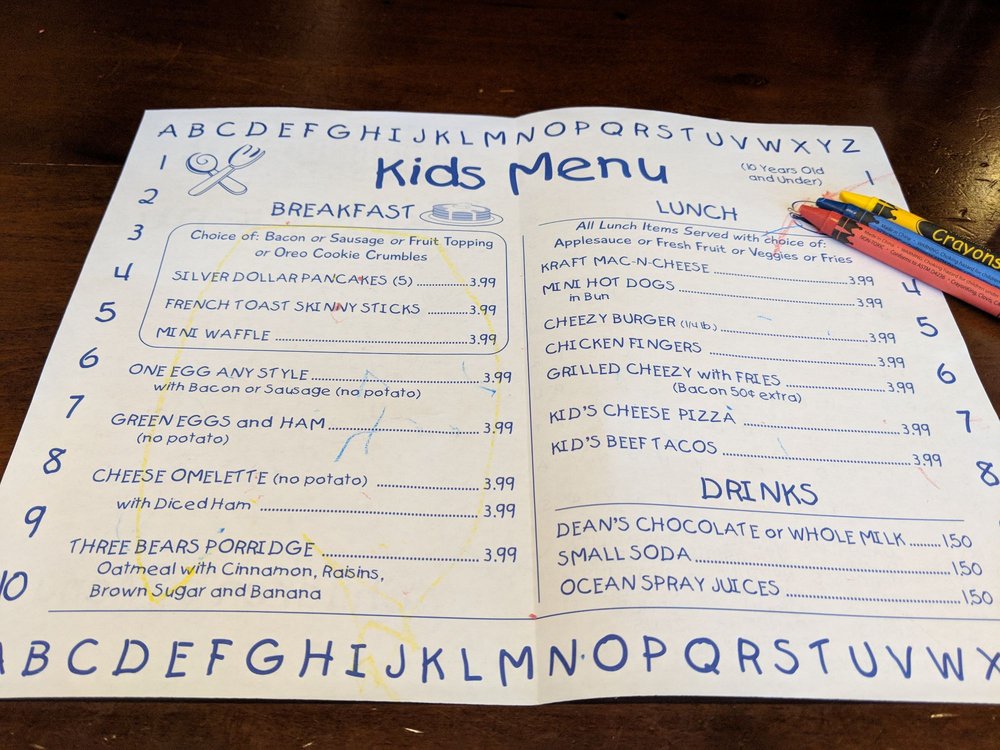 A B C D E F G H I J K L M N O P Q R S T U V W X Y Z
Kids Menu
(10 Years Old
and Under)
1
2
3
4
5
6
7
8
9
10
BREAKFAST
Choice of: Bacon or Sausage or Fruit Topping
or Oreo Cookie Crumbles
SILVER DOLLAR PANCAKES (5) 3.99
FRENCH TOAST SKINNY STICKS 3.99
MINI WAFFLE 3.99
ONE EGG ANY STYLE 3.99
with Bacon or Sausage (no potato)
GREEN EGGS and HAM 3.99
(no potato)
CHEESE OMELETTE (no potato) 3.99
with Diced Ham 3.99
THREE BEARS PORRIDGE 3.99
Oatmeal with Cinnamon, Raisins,
Brown Sugar and Banana
LUNCH
All Lunch Items Served with choice of:
Applesauce or Fresh Fruit or Veggies or Fries
KRAFT MAC-N-CHEESE 3.99
MINI HOT DOGS 3.99
in Bun
CHEEZY BURGER (1/4 lb.) 3.99
CHICKEN FINGERS 3.99
GRILLED CHEEZY with FRIES 3.99
(Bacon 50¢ extra)
KID'S CHEESE PIZZA 3.99
KID'S BEEF TACOS 3.99
DRINKS
DEAN'S CHOCOLATE or WHOLE MILK 1.50
SMALL SODA 1.50
OCEAN SPRAY JUICES 1.50
1
4
5
6
7
8
Crayons
A B C D E F G H I J K L M N O P Q R S T U V W X